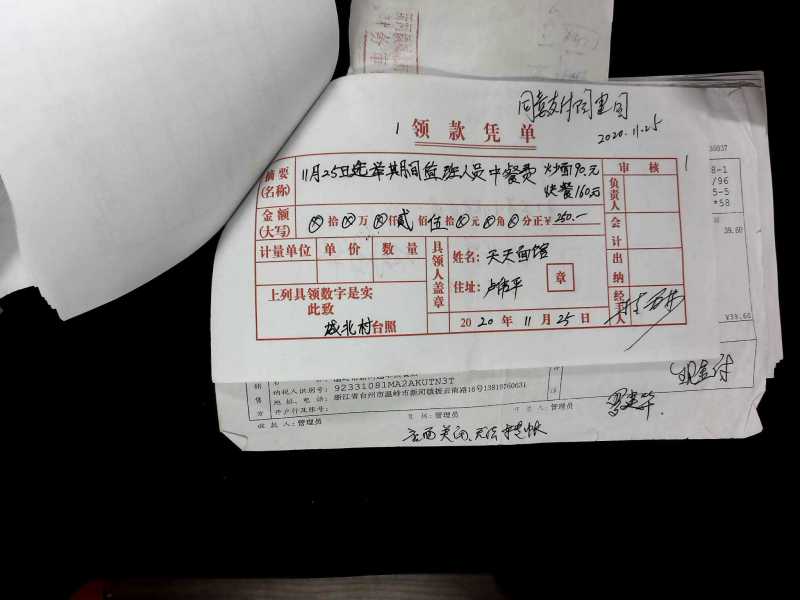 同意支付
2020.11.25
1 领款凭单
摘要(名称) 11月25日选举期间值班人员中餐费 炒面90元
快餐160元
审核
负责人
金额(大写) ⊗拾⊗万⊗仟贰佰伍拾⊗元⊗角⊗分正¥250.-
会计
计量单位 单价 数量
具领人盖章
姓名: 天天面馆
住址: 卢伟平
章
出纳
上列具领数字是实
此致
城北村台照
2020年11月25日
经手人
30037
8-1
/96
5-5
*58
39.60
¥39.60
销售方
纳税人识别号: 92331081MA2AKUTN3T
地址、电话: 浙江省台州市温岭市新河镇振云南路16号13819760631
开户行及账号:
收款人: 管理员
复核: 管理员
开票人: 管理员
现金付
店面关闭,无法转帐